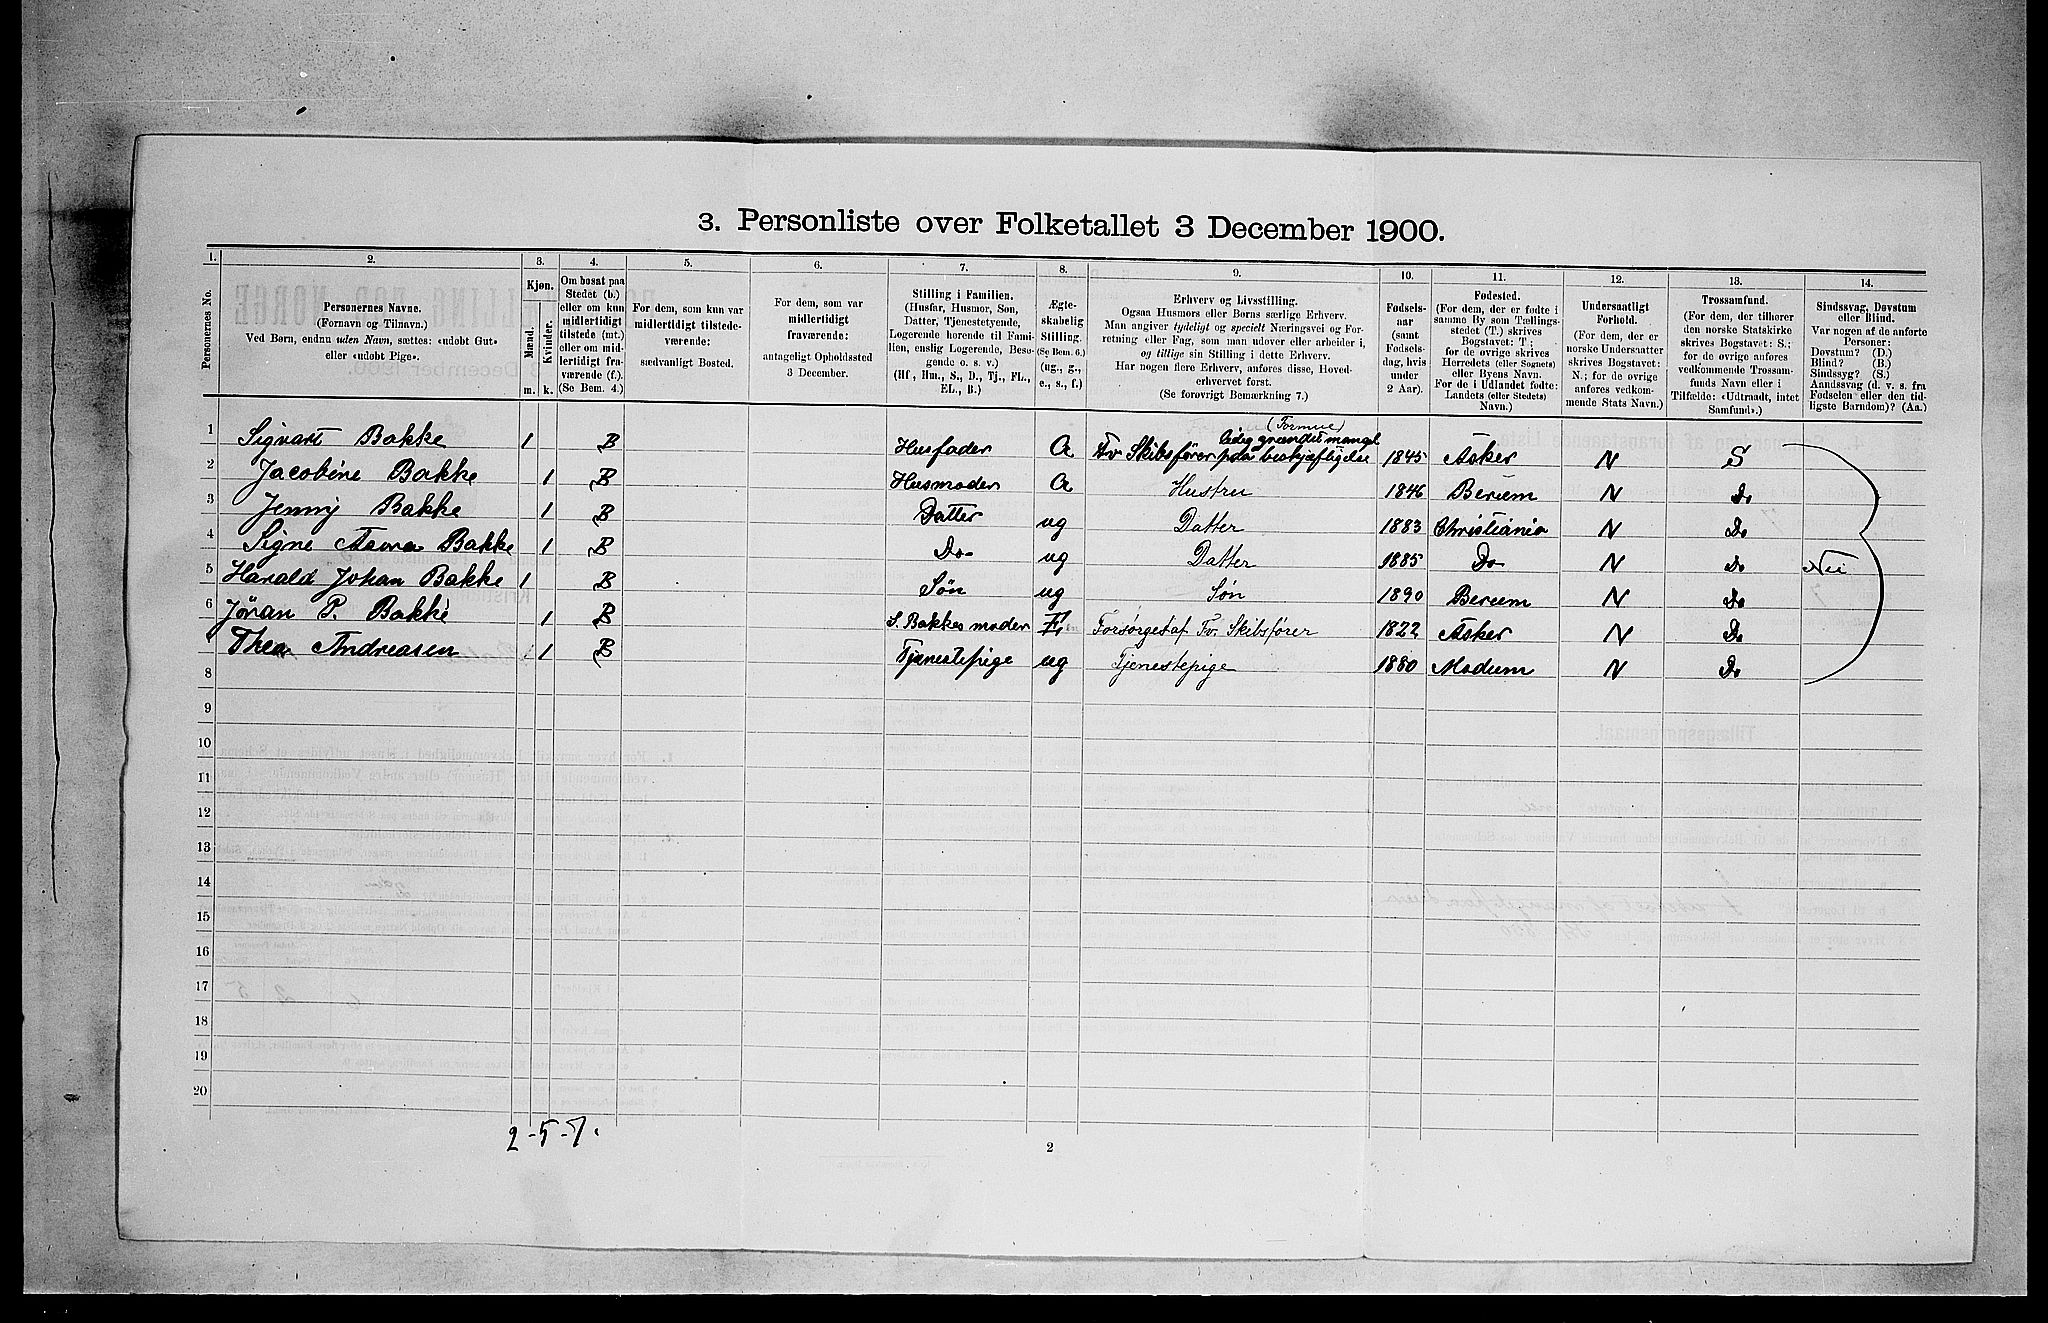 3. Personliste over Folketallet 3 December 1900.
1. 2. 3. 4. 5. 6. 7. 8. 9. 10. 11. 12. 13. 14.
Personernes No.
Personernes Navne.
(Fornavn og Tilnavn.)
Ved Børn, endnu uden Navn, sættes: «udøbt Gut»
eller «udøbt Pige».
Kjøn.
Mænd.
Kvinder.
m. k.
Om bosat paa
Stedet (b.)
eller om kun
midlertidigt
tilstede (mt.)
eller om mid-
lertidigt fra-
værende (f.).
(Se Bem. 4.)
For dem, som kun var
midlertidigt tilstede-
værende:
sædvanligt Bosted.
For dem, som var
midlertidigt
fraværende:
antageligt Opholdssted
3 December.
Stilling i Familien.
(Husfar, Husmor, Søn,
Datter, Tjenestetyende,
Logerende hørende til Fami-
lien, enslig Logerende, Besø-
gende o. s. v.)
(Hf, Hm., S., D., Tj., FL.,
EL., B.)
Ægte-
skabelig
Stilling.
(Se Bem. 6.)
(ug., g.,
e., s., f.)
Erhverv og Livsstilling.
Ogsaa Husmors eller Børns særlige Erhverv.
Man angiver tydeligt og specielt Næringsvei og For-
retning eller Fag, som man udover eller arbeider i,
og tillige sin Stilling i dette Erhverv.
Har nogen flere Erhverv, anføres disse, Hoved-
erhvervet først.
(Se forøvrigt Bemærkning 7.)
Fødsels-
aar
(samt
Fødsels-
dag, hvis
under
2 Aar).
Fødested.
(For dem, der er fødte i
samme By som Tællings-
stedet (T.) skrives
Bogstavet: T;
for de øvrige skrives
Herredets (eller Sognets)
eller Byens Navn.
For de i Udlandet fødte:
Landets (eller Stedets)
Navn.)
Undersaatligt
Forhold.
(For dem, der er
norske Undersaatter
skrives Bogstavet:
N.; for de øvrige
anføres vedkom-
mende Stats Navn.)
Trossamfund.
(For dem, der tilhører
den norske Statskirke
skrives Bogstavet: S.;
for de øvrige anføres
vedkommende Trossam-
funds Navn eller i
Tilfælde: «Udtraadt, intet
Samfund».)
Sindssvag, Døvstum
eller Blind.
Var nogen af de anførte
Personer:
Døvstum? (D.)
Blind? (B.)
Sindssyg? (S.)
Aandssvag (d. v. s. fra
Fødselen eller den tid-
ligste Barndom)? (Aa.)
(Formue)
ledig grundet mangel
1 Sigvart Bakke 1 B Husfader G Fv Skibsfører paa beskjæftigelse 1845 Asker N S
2 Jacobine Bakke 1 B Husmoder G Hustru 1846 Berum N Do
3 Jenny Bakke 1 B Datter ug Datter 1883 Christiania N Do
4 Signe Bakke 1 B Do ug Datter 1885 Do N Do Nei
5 Harald Johan Bakke 1 B Søn ug Søn 1890 Berum N Do
6 Jöran P. Bakke 1 B S. Bakkes moder E. Forsørges af Fv. Skibsfører 1822 Asker N Do
Thea Andreasen 1 B Tjenestepige ug Tjenestepige 1880 Modum N Do
8
9
10
11
12
13
14
15
16
17
18
19
20
2-5-7.
2